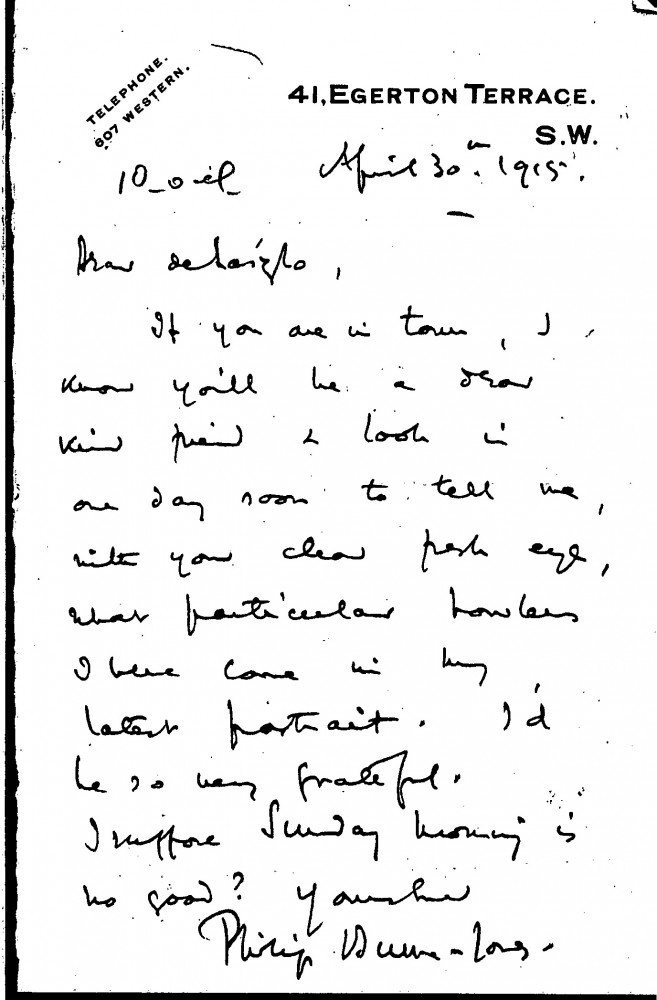 TELEPHONE.
607 WESTERN.
41, EGERTON TERRACE.
S.W.
April 30th. 1915.
Dear de László,
If you are in town, I
know you'll be a dear
kind friend & look in
one day soon to tell me,
with your clear fresh eye,
what particular howlers
I have come in my
latest portrait. I'd
be so very grateful.
I suppose Sunday morning is
no good? Yours ever
Philip Burne-Jones.